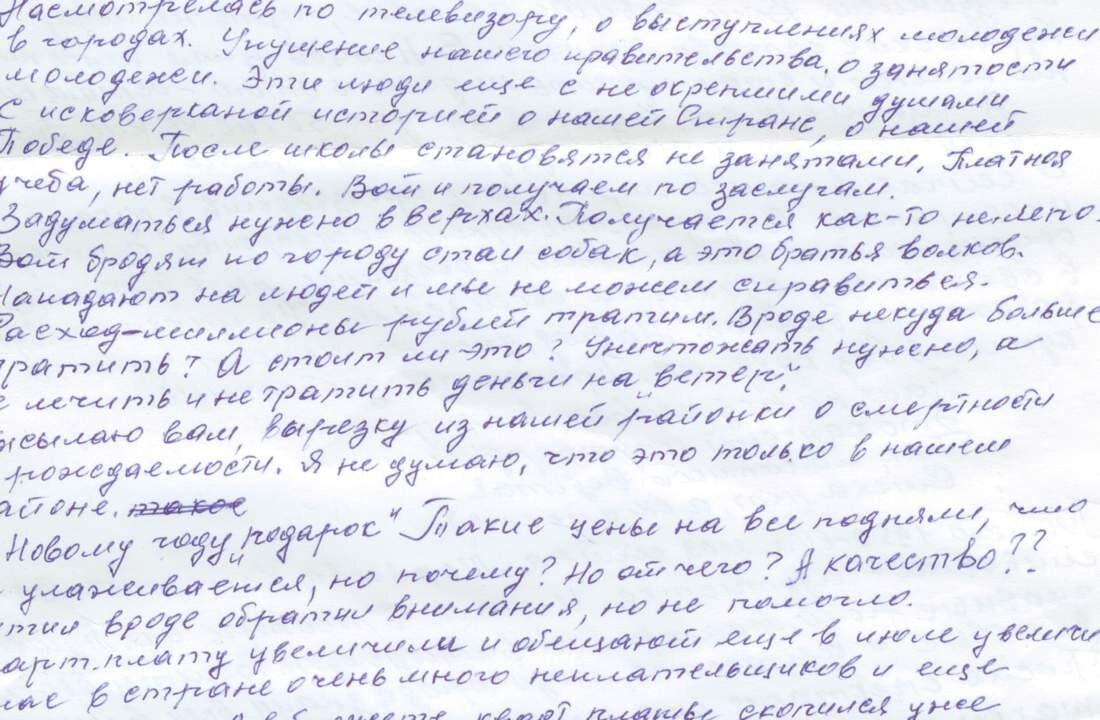 Насмотрелась по телевизору, о выступлениях молодежи
в городах. Упущение нашего правительства о занятости
молодежи. Эти люди еще с не окрепшими душами
С исковерканой историей о нашей Стране, о нашей
Победе. После школы становятся не занятами, Платная
учеба, нет работы. Вот и получаем по заслугам.
Задуматься нужно в верхах. Получается как-то нелепо.
Вот бродят по городу стаи собак, а это братья волков.
Нападают на людей и мы не можем справиться.
Расход-миллионы рублей тратим. Вроде некуда больше
тратить? А стоит ли это? Уничтожать нужно, а
не лечить и не тратить деньги на ветер".
высылаю вам, вырезку из нашей "районки о смертности
рождаемости. Я не думаю, что это только в нашем
районе. такое
Новому году „подарок" Такие цены на все подняли, что
улаживается, но почему? Но от чего? А качество??
вроде обратил внимания, но не помогло.
кварт.плату увеличили и обещают еще в июле увеличи
нас в стране очень много неплательщиков и еще
скопился уже